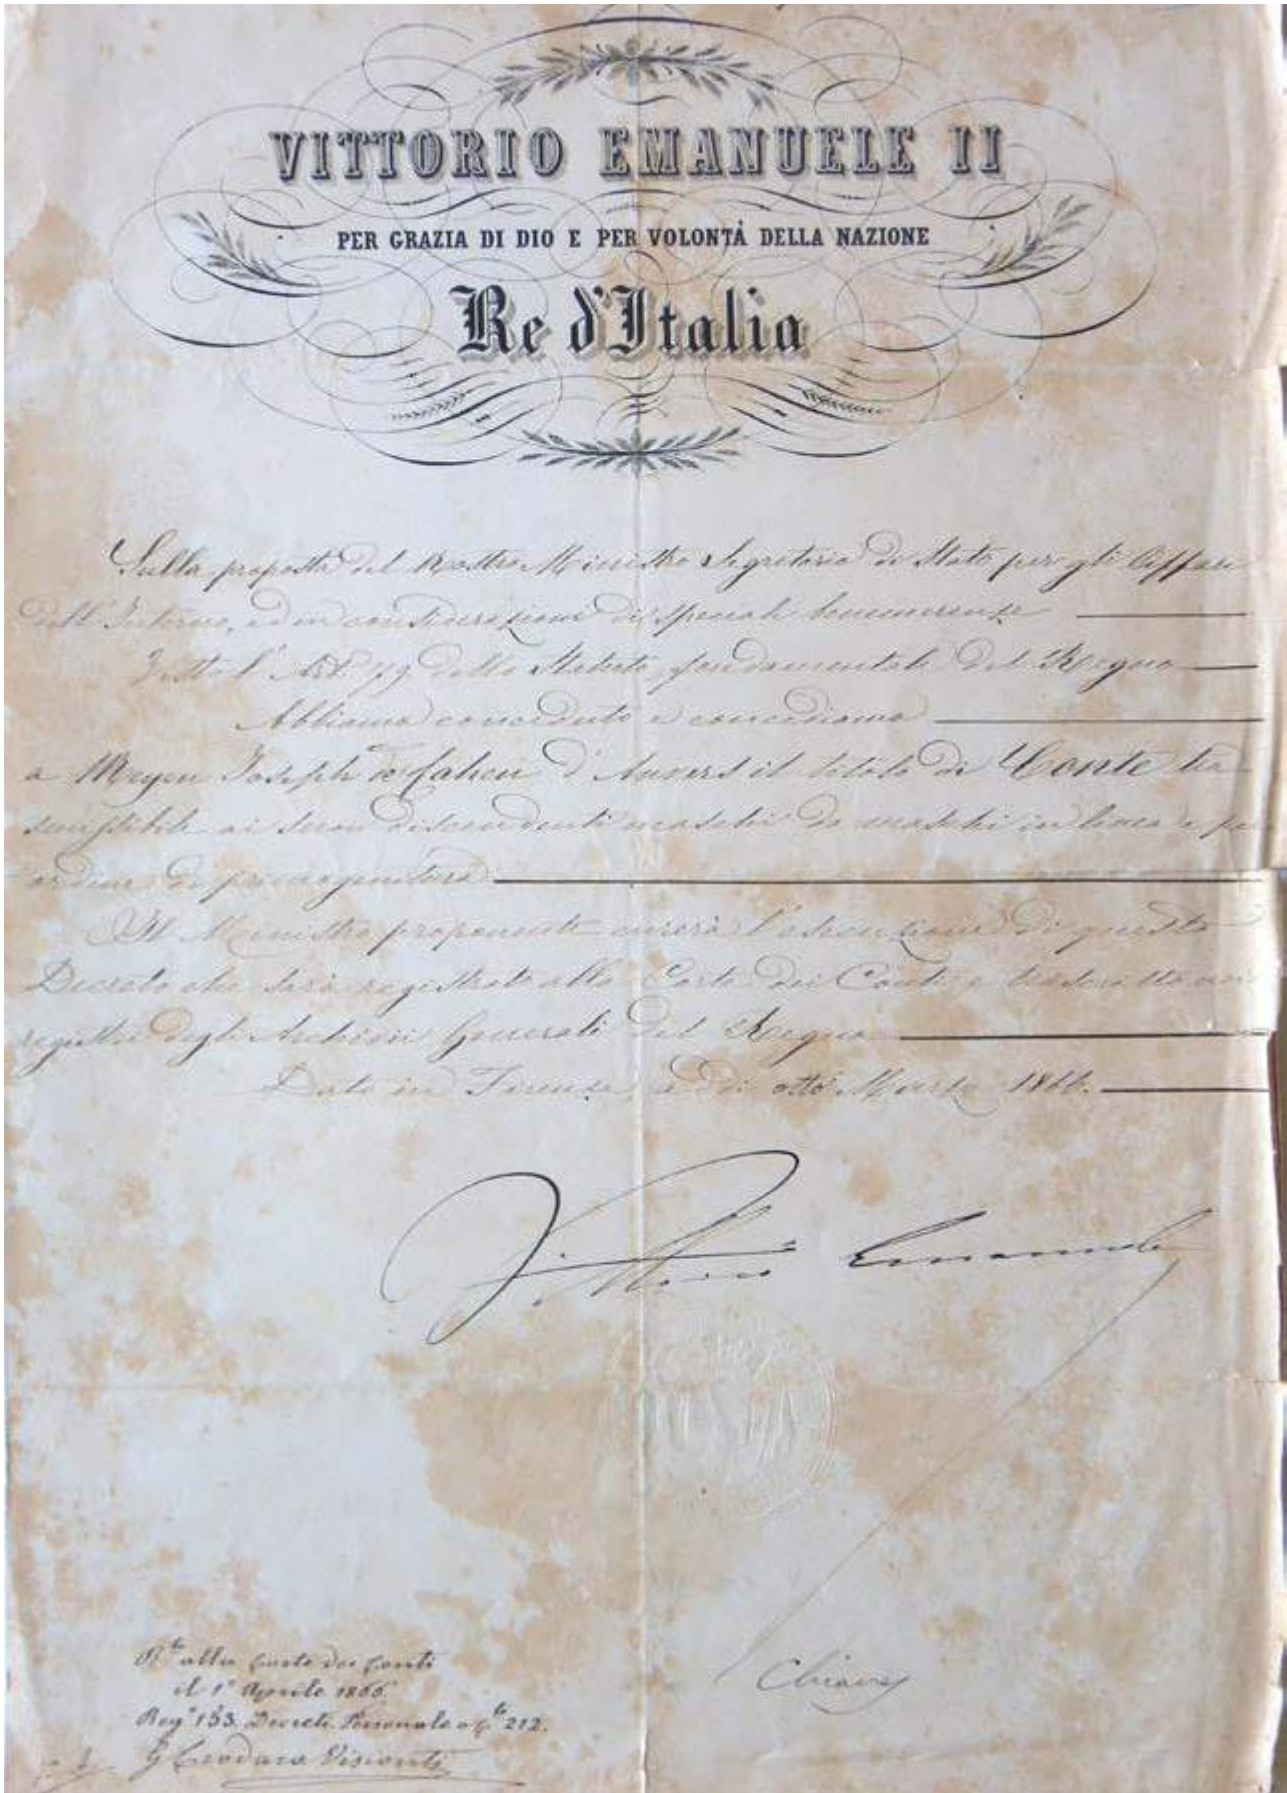 VITTORIO EMANUELE II
PER GRAZIA DI DIO E PER VOLONTÀ DELLA NAZIONE
Re d'Italia
Sulla proposta del Nostro Ministro Segretario di Stato per gli Affari
dell'Interno, ed in considerazione di speciali benemerenze
Visto l'Art. 79 dello Statuto fondamentale del Regno
Abbiamo conceduto e concediamo
a Meyer Joseph Cahen d'Anvers il titolo di Conte tra
smissibile ai suoi discendenti maschi da maschi in linea e per
ordine di primogenitura
Il Ministro proponente curerà l'esecuzione di questo
Decreto che sarà registrato alla Corte dei Conti e trascritto nei
registri degli Archivi Generali del Regno
Dato in Firenze, a dì otto Marzo 1866.
Vittorio Emanuele
R.to alla Corte dei Conti
il 1° Aprile 1866
Reg° 133. Decreti Personale a f.to 212.
Teodoro Visconti
Chiaves